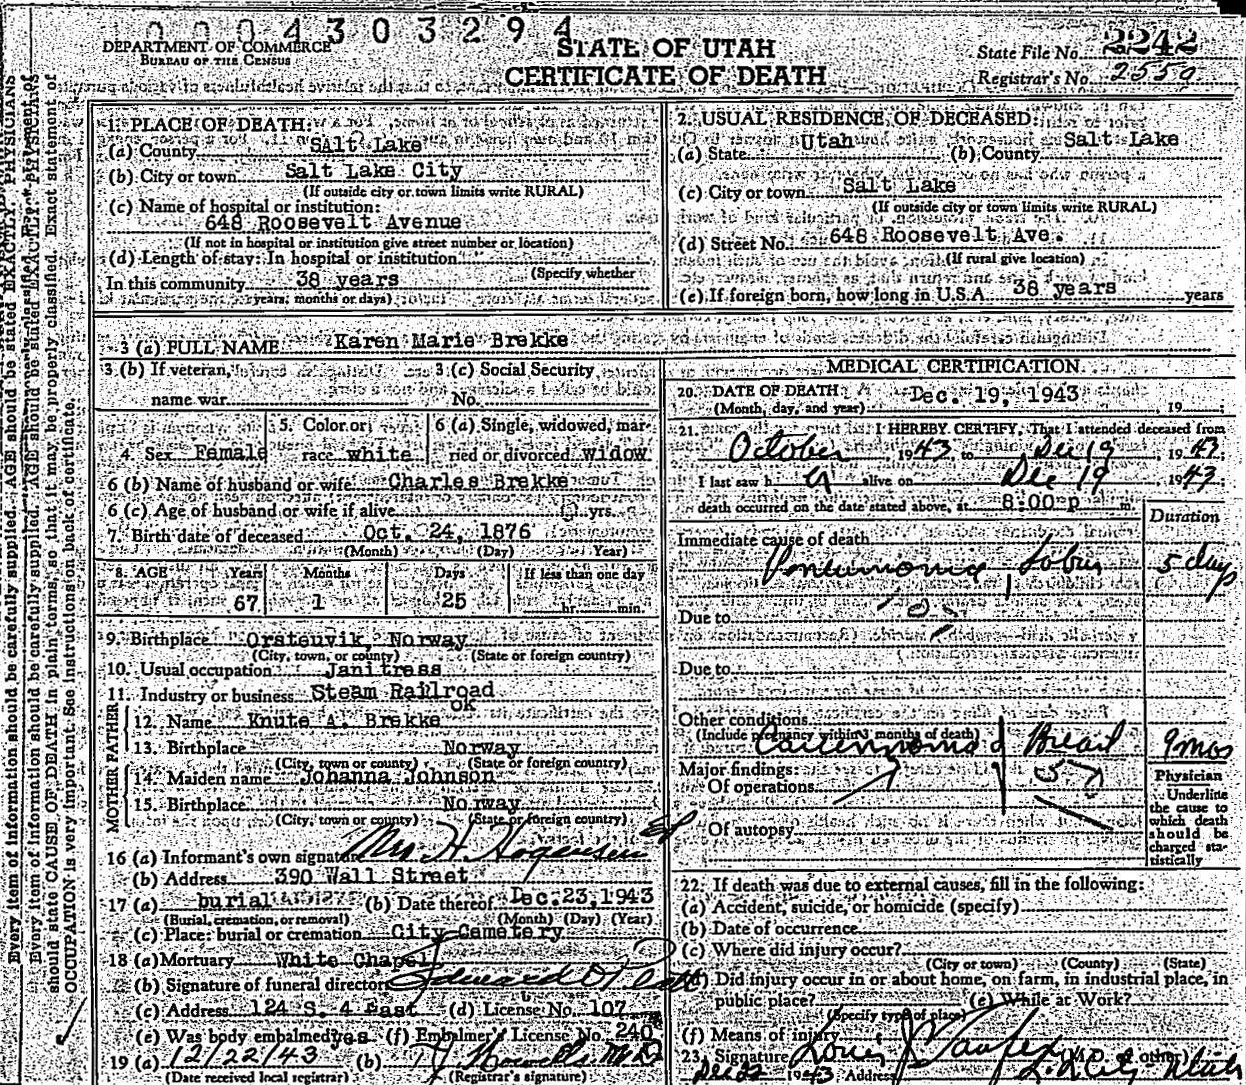 0004303294
DEPARTMENT OF COMMERCE
BUREAU OF THE CENSUS
STATE OF UTAH
CERTIFICATE OF DEATH
State File No. 2242
Registrar's No. 2559
1. PLACE OF DEATH:
(a) County SAlt Lake
(b) City or town Salt Lake City
(If outside city or town limits write RURAL)
(c) Name of hospital or institution:
648 Roosevelt Avenue
(If not in hospital or institution give street number or location)
(d) Length of stay: In hospital or institution
(Specify whether
In this community 38 years
years, months or days)
2. USUAL RESIDENCE OF DECEASED:
(a) State Utah (b) County Salt Lake
(c) City or town Salt Lake
(If outside city or town limits write RURAL)
(d) Street No. 648 Roosevelt Ave.
(If rural give location)
(e) If foreign born, how long in U.S.A. 38 years years
3 (a) FULL NAME Karen Marie Brekke
3 (b) If veteran, name war
3 (c) Social Security No.
4. Sex Female
5. Color or race white
6 (a) Single, widowed, married or divorced widow
6 (b) Name of husband or wife Charles Brekke
6 (c) Age of husband or wife if alive yrs.
7. Birth date of deceased Oct. 24, 1876
(Month) (Day) Year)
8. AGE Years Months Days If less than one day
67 1 25 hr. min.
9. Birthplace Orsteuvik, Norway
(City, town, or county) (State or foreign country)
10. Usual occupation Janitress
11. Industry or business Steam Railroad
ok
FATHER
12. Name Knute A. Brekke
13. Birthplace Norway
(City, town or county) (State or foreign country)
MOTHER
14. Maiden name Johanna Johnson
15. Birthplace Norway
(City, town or county) (State or foreign country)
16 (a) Informant's own signature Mrs H. Hogensen
(b) Address 390 Wall Street
17 (a) burial (b) Date thereof Dec.23,1943
(Burial, cremation, or removal) (Month) (Day) (Year)
(c) Place: burial or cremation City Cemetery
18 (a) Mortuary White Chapel
(b) Signature of funeral director Edward
(c) Address 124 S. 4 East (d) License No. 107
(e) Was body embalmed yes (f) Embalmer's License No. 240
19 (a) 12/22/43 (b)
(Date received local registrar) (Registrar's signature)
MEDICAL CERTIFICATION
20. DATE OF DEATH: Dec. 19, 1943
(Month, day, and year) , 19 ;
21. I HEREBY CERTIFY, That I attended deceased from
October 1943 to Dec 19 1943;
I last saw h er alive on Dec 19 1943;
death occurred on the date stated above, at 8:00 p m.
Duration
Immediate cause of death
Pneumonia, Lobar 5 days
Due to
Due to
Other conditions
(Include pregnancy within 3 months of death)
Carcinoma of Breast 9 mos
Major findings:
Of operations
Of autopsy
Physician
Underline
the cause to
which death
should be
charged statistically
22. If death was due to external causes, fill in the following:
(a) Accident, suicide, or homicide (specify)
(b) Date of occurrence
(c) Where did injury occur?
(City or town) (County) (State)
(d) Did injury occur in or about home, on farm, in industrial place, in
public place? (e) While at Work?
(Specify type of place)
(f) Means of injury
23. Signature Louis J. (M.D. or other)
Dec 22 1943 Address S. L. City Utah
Every item of information should be carefully supplied. AGE should be stated EXACTLY. PHYSICIANS
should state CAUSE OF DEATH in plain terms, so that it may be properly classified. Exact statement of
OCCUPATION is very important. See instructions on back of certificate.